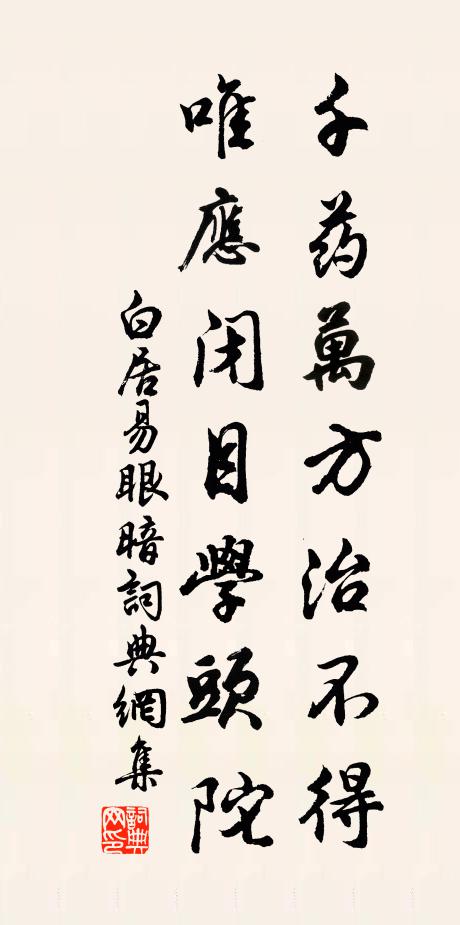 千药萬方治不得
唯應闭目學頭陀
白居易眼暗詞典網集
詞典网印